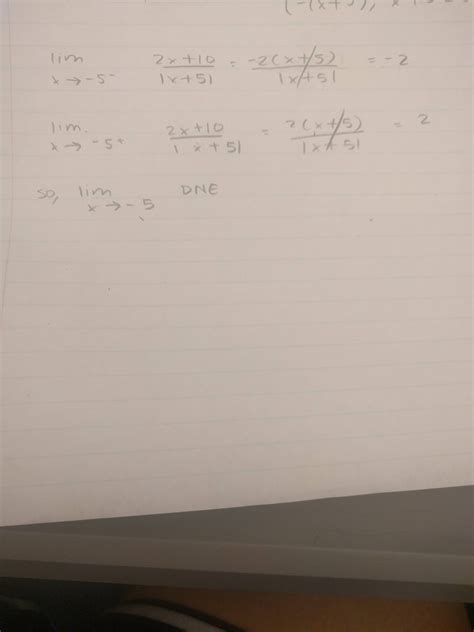 (-(x+5), x
lim x→-5⁻ 2x+10/|x+5| = -2(x+5)/|x+5| = -2
lim. x→-5+ 2x+10/|x+5| = 2(x+5)/|x+5| = 2
so, lim x→-5 DNE